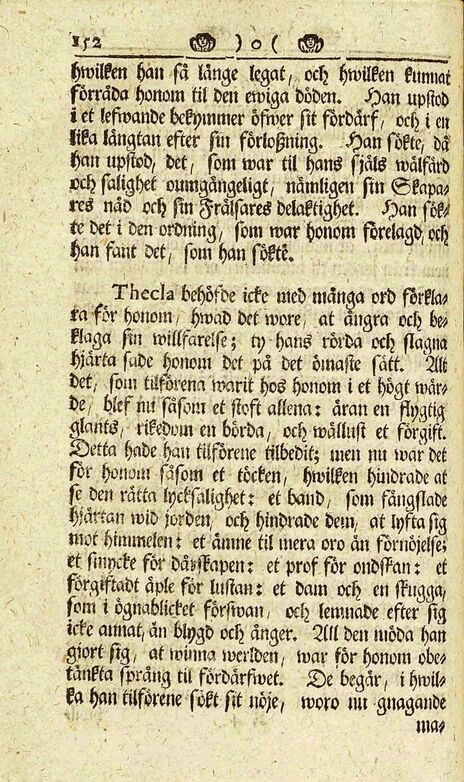 152 ) o (
hwilken han så länge legat, och hwilken kunnat
förråda honom til den ewiga döden. Han upstod
i et lefwande bekymmer öfwer sit fördärf, och i en
lika långtan efter sin förloßning. Han sökte, då
han upstod, det, som war til hans själs wälfärd
och salighet oumgängeligt, nämligen sin Skapa-
res nåd och sin Frälsares delaktighet. Han sök-
te det i den ordning, som war honom förelagd, och
han fant det, som han sökte.
Thecla behöfde icke med många ord förkla-
ra för honom, hwad det wore, at ångra och be-
klaga sin willfarelse; ty hans rörda och slagna
hjärta sade honom det på det ömaste sätt. Alt
det, som tilförena warit hos honom i et högt wär-
de, blef nu såsom et stoft allena: äran en flygtig
glants, rikedom en börda, och wällust et förgift.
Detta hade han tilförene tilbedit; men nu war det
för honom såsom et töcken, hwilken hindrade at
se den rätta lycksalighet: et band, som fängslade
hjärtan wid jorden, och hindrade dem, at lyfta sig
mot himmelen: et ämne til mera oro än förnöjelse;
et smycke för dårskapen: et prof för ondskan: et
förgiftadt äple för lustan: et dam och en skugga,
som i ögnablicket förswan, och lemnade efter sig
icke annat, än blygd och ånger. All den möda han
gjort sig, at winna werlden, war för honom obe-
tänkta språng til fördärfwet. De begär, i hwil-
ka han tilförene sökt sit nöje, woro nu gnagande
ma-